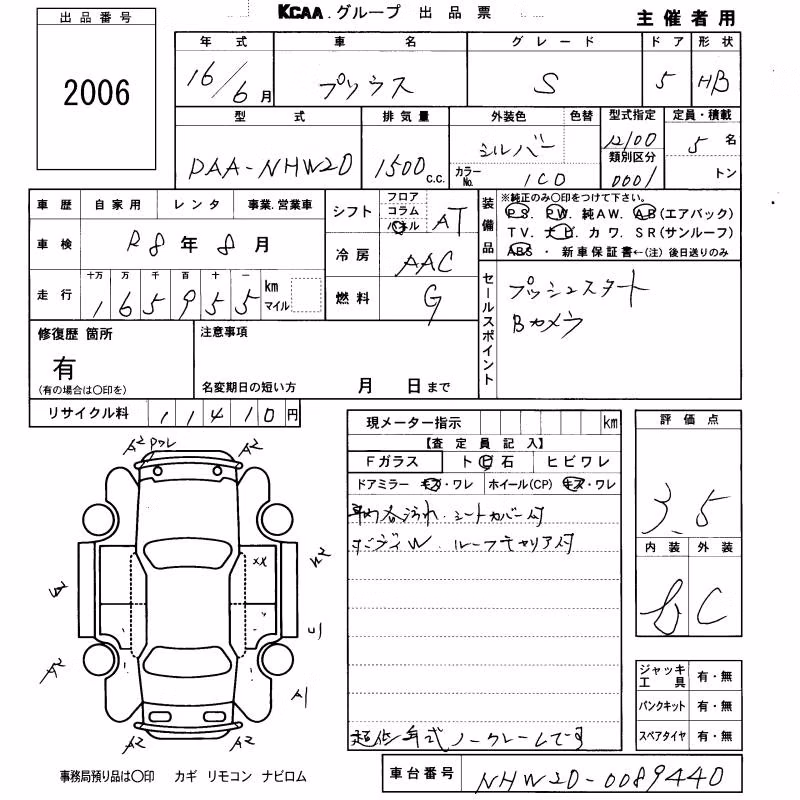 出品番号
2006
KCAA.グループ 出品票
主催者用
年式 車名 グレード ドア 形状
16/6月 プリウス S 5 HB
型式 排気量 外装色 色替 型式指定 定員・積載
DAA-NHW20 1500c.c. シルバー 12100 5名
カラーNo. 1C0 類別区分 0001 トン
車歴 自家用 レンタ 事業.営業車
車検 R8年8月
走行 十万 万 千 百 十 一
165955 km マイル
シフト フロア コラム パネル AT
冷房 AAC
燃料 G
装備品
※純正のみ〇印をつけて下さい。
PS. PW. 純AW. AB(エアバック)
TV. ナビ. カワ. SR(サンルーフ)
ABS ・ 新車保証書←(注)後日送りのみ
セールスポイント
プッシュスタート
Bカメラ
修復歴 箇所
有
(有の場合は〇印を)
注意事項
名変期日の短い方 月 日まで
リサイクル料 11410円
現メーター指示 km
【査定員記入】
Fガラス トビ石 ヒビワレ
ドアミラー キズ・ワレ ホイール(CP) キズ・ワレ
車内各汚れ.シートカバー付
ボディW.ルーフキャリア付
超低年式ノークレームです
評価点
3.5
内装 外装
b C
ジャッキ工具 有・無
パンクキット 有・無
スペアタイヤ 有・無
A2 ワレ A2
XX
A2 A1
A2 A2
事務局預り品は〇印 カギ リモコン ナビロム
車台番号 NHW20-0089440